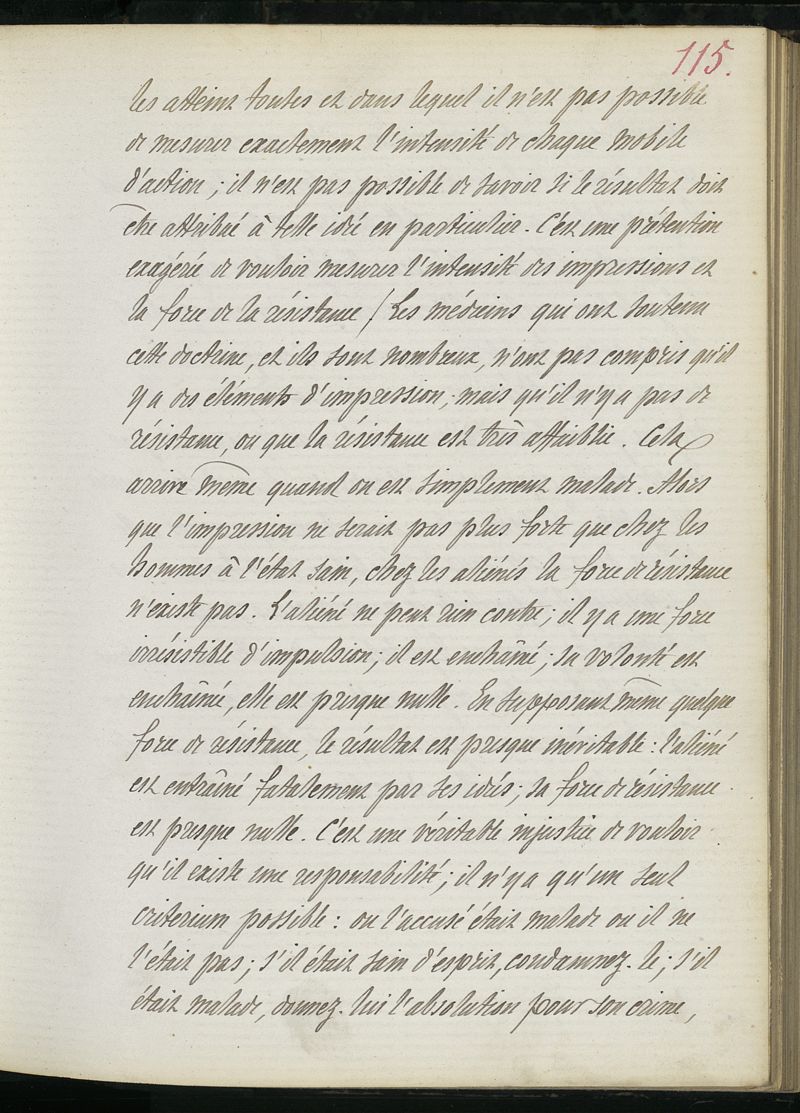 115.
les atteint toutes et dans lequel il n'est pas possible
de mesurer exactement l'intensité de chaque mobile
d'action ; il n'est pas possible de savoir si le résultat doit
être attribué à telle idée en particulier. C'est une prétention
exagérée de vouloir mesurer l'intensité des impressions et
la force de la résistance / Les médecins qui ont soutenu
cette doctrine, et ils sont nombreux, n'ont pas compris qu'il
y a des éléments d'impression, mais qu'il n'y a pas de
résistance, ou que la résistance est très affaiblie. Cela
arrive même quand on est simplement malade. Alors
que l'impression ne serait pas plus forte que chez les
hommes à l'état sain, chez les aliénés la force de résistance
n'existe pas. L'aliéné ne peut rien contre ; il y a une force
irrésistible d'impulsion ; il est entraîné ; sa volonté est
enchaînée, elle est presque nulle. En supposant même quelque
force de résistance, le résultat est presque inévitable : l'aliéné
est entraîné fatalement par ses idées ; sa force de résistance
est presque nulle. C'est une véritable injustice de vouloir
qu'il existe une responsabilité ; il n'y a qu'un seul
criterium possible : ou l'accusé était malade ou il ne
l'était pas ; s'il était sain d'esprit, condamnez-le ; s'il
était malade, donnez-lui l'absolution pour son crime,